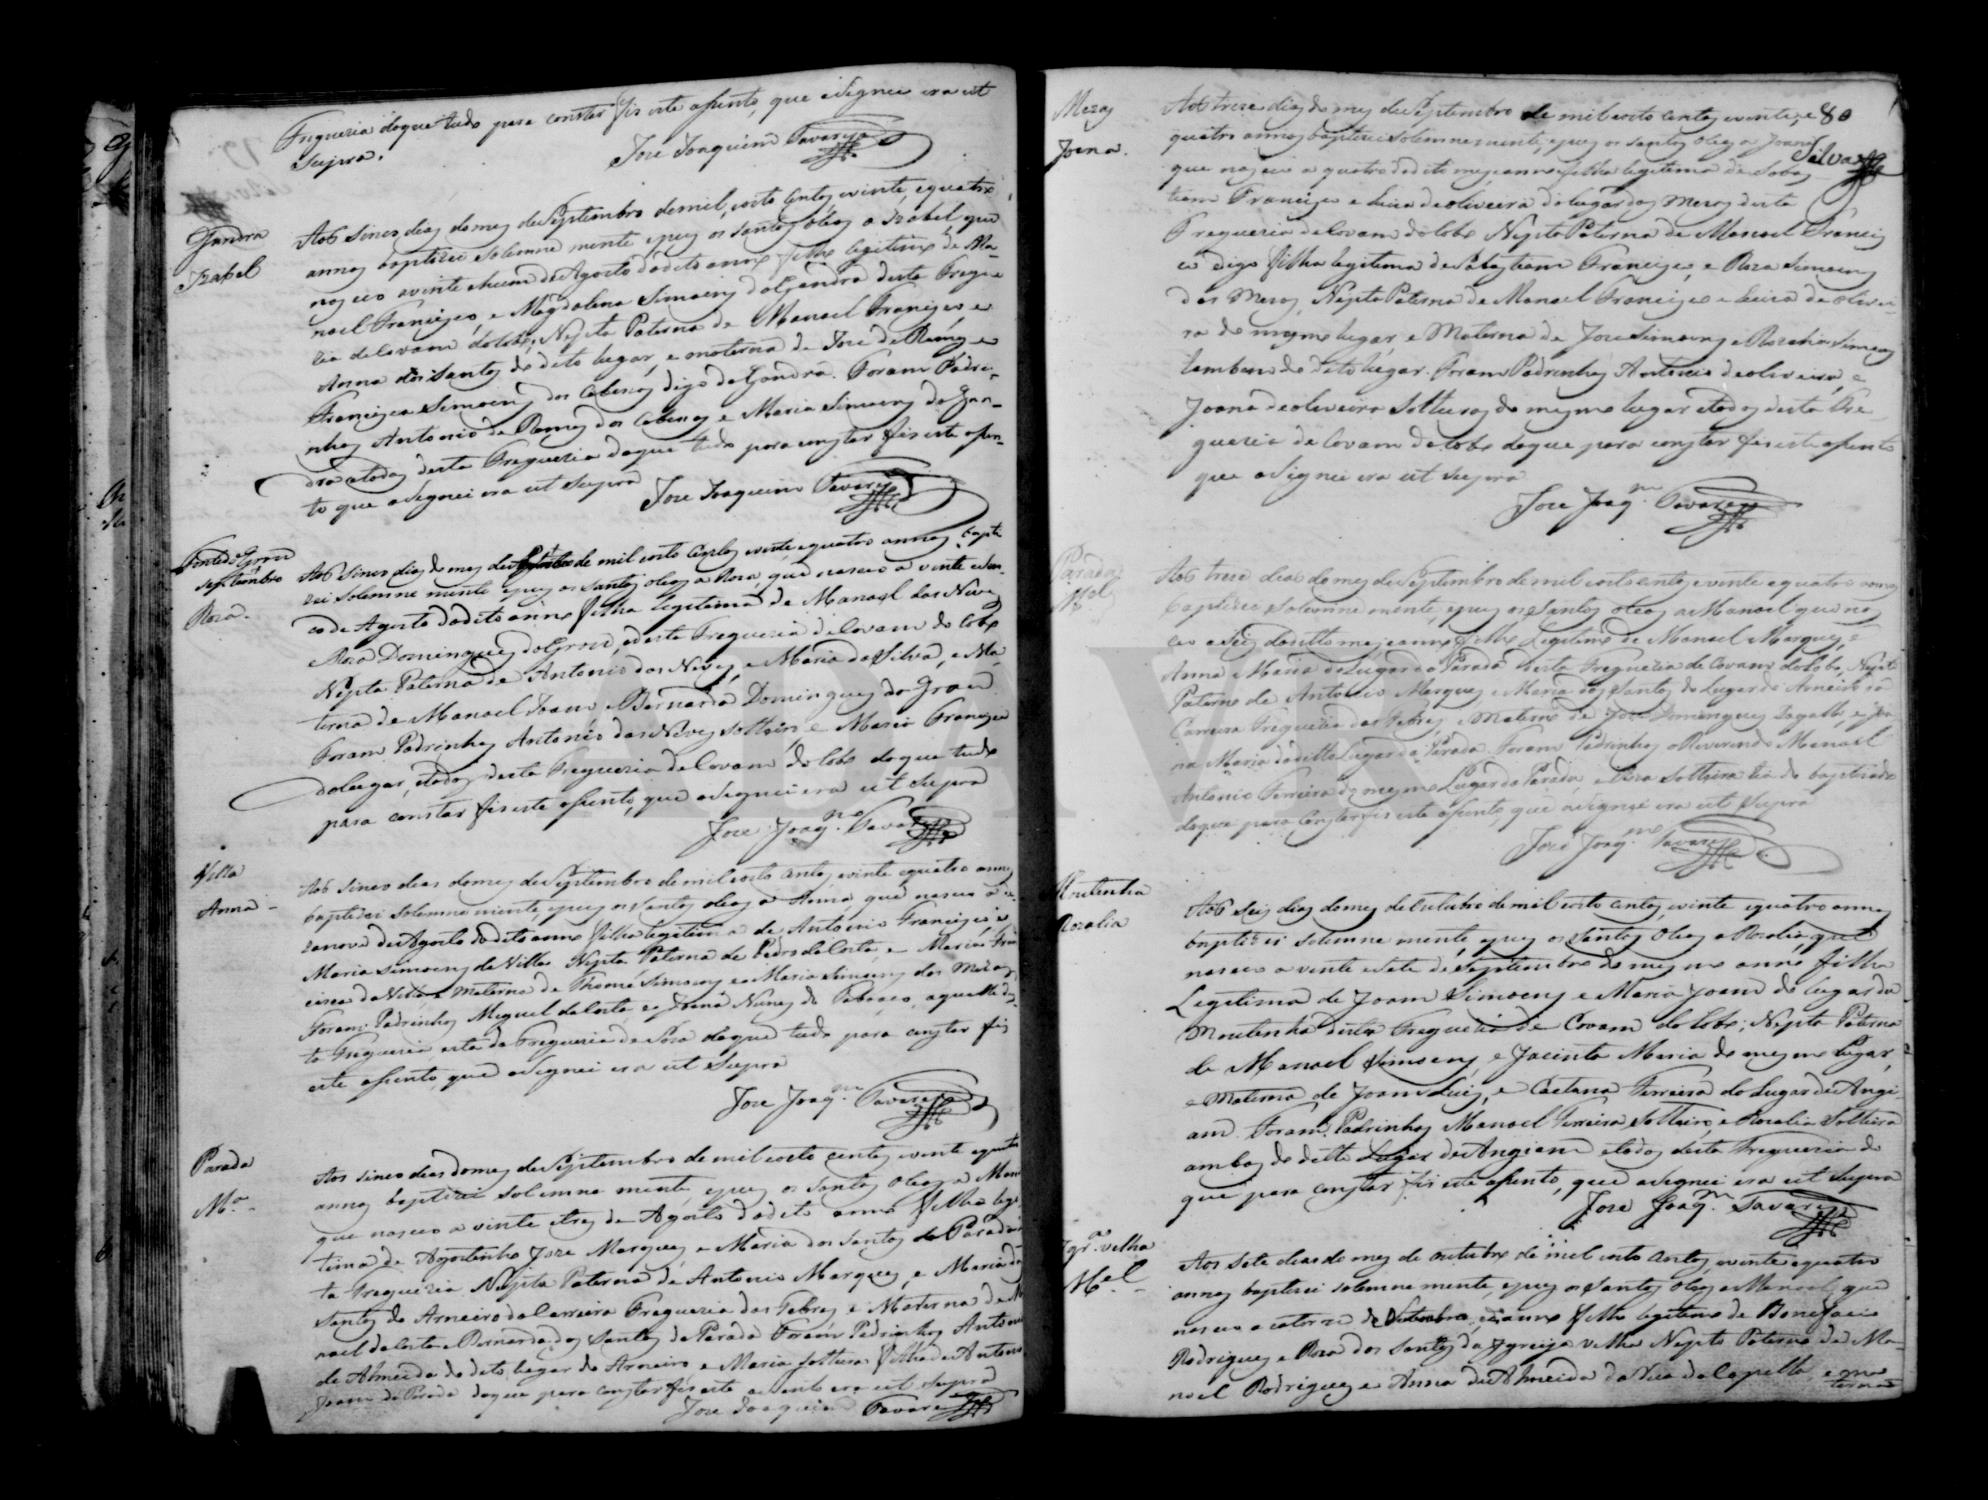 Freguezia doque tudo para constar fis este asento, que asignei era ut
Supra.
Joze Joaquim Tavares
Gandra
Izabel
Aos sinco dias do mes de Septembro de mil, oito centos evinte, equatro
annos baptizei solemne mente epuz os santos oleos a Izabel que
nasceo avinte ehum de Agosto dodito anno filha legitima de Ma-
noel Francisco, e Magdalena Simoens da Gandra desta Fregue
zia de Covam do Lobo, Nepta Paterna de Manoel Francisco, e
Anna dos Santos do dito lugar, e materna de Joze de Ramos e
Francisca Simoens dos Cabesos digo da Gandra. Foram Padri-
nhos Antonio de Ramos dos Cabesos e Maria Simoens da Gan-
dra etodos desta Freguezia doque tudo para constar fis este asen-
to que asignei era ut supra
Joze Joaquim Tavares
Septembro
Roza.
Aos sinco dias do mes de de mil oito centos evinte, equatro annos bapti
zei solemne mente epuz os santos oleos a Roza, que nasceo a vinte e
co de Agosto dodito anno filha legitima de Manoel das Neves
Roza Domingues do Grou, desta Freguezia de Covam do Lobo
Nepta Paterna de Antonio das Neves, e Maria da Silva, e Ma
terna de Manoel Joam e Bernarda Domingues do Grou
Foram Padrinhos Antonio das Neves solteiro, e Maria Francisca
dolugar, etodos desta Freguezia de Covam do Lobo doque tudo
para constar fis este asento, que asignei era ut supra
Joze Joaq.m Tavares
Villa
Anna -
Aos sinco dias domes de Septembro de mil oito centos evinte equatro annos
baptizei solemne mente, epuz os santos oleos a Anna, que nasceo a
zanove de Agosto dodito anno filha legitima de Antonio Francisco, e
Maria Simoens da Villa Nepta Paterna de Pedro da Costa, e Maria Fran
cisca da Villa e Materna de Thomé Simoens e Maria Simoens dos Mesas
Foram Padrinhos Miguel da Costa e Joana Nunes de aquelle des-
ta Freguezia esta da Freguezia de Soza doque tudo para constar fis
este asento, que asignei era ut Supra
Joze Joaq.m Tavares
Parada
M.a -
Aos sinco dias do mes de Septembro de mil oito centos evinte equatro
annos baptizei solemne mente, epuz os santos oleos a Mari
que nasceo a vinte etres de Agosto dodito anno filha legi
tima de Agostinho Joze Marques, e Maria dos Santos da Parada
ta Freguezia Nepta Paterna de Antonio Marques, e Maria dos
Santos do Arneiro da Carreira Freguezia das Febres e Materna de Ma
noel da Costa e Bernarda dos Santos da Parada Foram Padrinhos Antonio
de Almeida do dito lugar do Arneiro, e Maria solteira filha de Antonio
Joam da Parada doque para constar fis este asento era ut supra
Joze Joaquim Tavares
80
Silva
Mesas
Joana.
Aos treze dias do mes de Septembro de mil oito centos evinte, e
quatro annos baptizei solemnemente, epuz os santos oleos a Joana
que nasceo a quatro do dito mes eanno filha legitima de Sabas
tiam Francisco e Luiza de oliveira do lugar dos Mesas desta
Freguezia de Covam do Lobo Nepta Paterna de Manoel Francis
co digo filha legitima de Sabastiam Francisco, e Roza Simoens
dos Mesas, Nepta Paterna de Manoel Francisco e Luiza de olivei-
ra do mesmo lugar, e Materna de Joze Simoens e Simoens
tambem do dito lugar. Foram Padrinhos Antonio de oliveira, e
Joana de oliveira Solteiros do mesmo lugar etodos desta Fre
guezia de Covam do Lobo doque para constar fis este asento
que asignei era ut supra
Joze Joaq.m Tavares
Parada
M.el
Aos treze dias do mes de Septembro de mil oito centos evinte equatro annos
baptizei solemne mente, epuz os santos oleos a Manoel que nas
ceo a seis dodito mes eanno filho Legitimo de Manoel Marques, e
Anna Maria do Lugar da Parada desta Freguezia de Covam do Lobo, Nepto
Paterno de Antonio Marques e Maria dos Santos do Lugar do Arneiro da
Carreira Freguezia das Febres, e Materno de Joze Domingues e Joa
na Maria dodito Lugar da Parada. Foram Padrinhos o Reverendo Manoel
Antonio Ferreira do mesmo Lugar da Parada, e Roza Solteira tia do baptizado
doque para Constar fis este asento, que asignei era ut Supra
Joze Joaq.m Tavares
Moutinha
Rozalia
Aos Seis dias domes de Outubro de mil oito centos, evinte equatro annos
baptizei solemne mente, epuz os santos Oleos a Rozalia, que
nasceo a vinte esete de Septembro do mesmo anno filha
Legitima de Joam Simoens e Maria Joam do lugar da
Moutinha desta Freguezia de Covam do Lobo; Nepta Paterna
de Manoel Simoens, e Jacinta Maria do mesmo Lugar,
e Materna de Joam Luis, e Caetana Ferreira do Lugar de Angi
am. Foram Padrinhos Manoel Ferreira Solteiro, e Rozalia Solteira
ambos do ditto Lugar de Angiam etodos desta Freguezia do
que para constar fis este asento, que asignei era ut supra
Joze Joaq.m Tavares
Igr.a velha
M.el -
Aos Sete dias do mes de outubro de mil oito centos, evinte equatro
annos baptizei solemne mente, epuz os santos Oleos a Manoel, que
nasceo a catorze de Setembro, eanno filho legitimo de Bonifacio
Rodrigues e Roza dos Santos da Igreija velha Nepto Paterno de Ma-
noel Rodrigues e Anna de Almeida da Rua da Capella, e ma
terno